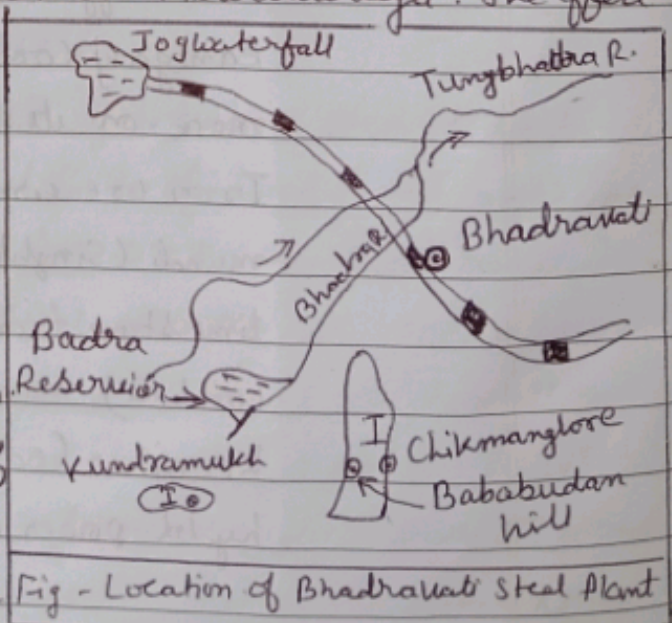 The
Jogwaterfall
Tungbhattra R.
Bhadravati
Bhadra R.
Badra
Reserviór
Kundramukh
I
I
Chikmanglore
Bababudan
hill
Fig - Location of Bhadravati Steal Plant